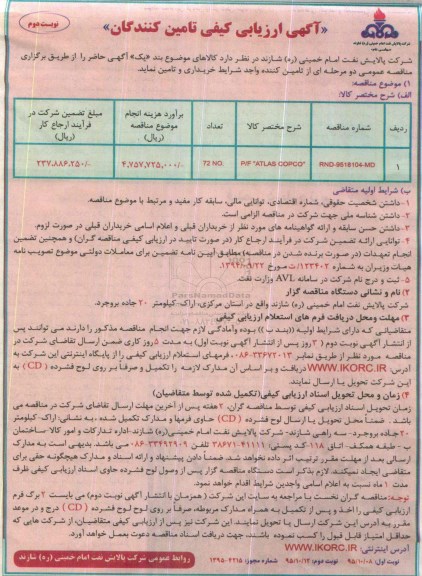 نوبت دوم
«آگهی ارزیابی کیفی تامین کنندگان»
شرکت پالایش نفت امام خمینی (ره) شازند در نظر دارد کالاهای موضوع بند «یک» آگهی حاضر را از طریق برگزاری
مناقصه عمومی دو مرحله ای از تامین کننده واجد شرایط خریداری و تامین نماید.
۱) موضوع مناقصه:
الف) شرح مختصر کالا:
ردیف شماره مناقصه شرح مختصر کالا تعداد برآورد هزینه انجام موضوع مناقصه (ریال) مبلغ تضمین شرکت در فرآیند ارجاع کار (ریال)
۱ RND-9518104-MD P/F "ATLAS COPCO" 72 NO. ۴,۷۵۷,۷۲۵,۰۰۰/- ۲۳۷,۸۸۶,۲۵۰/-
ب) شرایط اولیه متقاضی
۱- داشتن شخصیت حقوقی، شماره اقتصادی، توانایی مالی، سابقه کار مفید و مرتبط با موضوع مناقصه.
۲- داشتن شناسه ملی جهت شرکت در مناقصه الزامی است.
۳- داشتن حسن سابقه و ارائه گواهینامه های مورد نظر از خریداران قبلی و اعلام اسامی خریداران قبلی در صورت لزوم.
۴- توانایی ارائه تضمین شرکت در فرآیند ارجاع کار (در صورت تایید در ارزیابی کیفی مناقصه گران) و همچنین تضمین
انجام تعهدات (در صورت برنده شدن در مناقصه) مطابق آیین نامه تضمین برای معاملات دولتی موضوع تصویب نامه
هیات وزیران به شماره ۱۲۳۴۰۲/ت مورخ ۱۳۹۴/۰۹/۲۲.
۵- ثبت و درج نام شرکت در سامانه AVL وزارت نفت.
۲) نام و نشانی دستگاه مناقصه گزار
شرکت پالایش نفت امام خمینی (ره) شازند واقع در استان مرکزی، اراک- کیلومتر ۲۰ جاده بروجرد.
۳) مهلت و محل دریافت فرم های استعلام ارزیابی کیفی
متقاضیانی که دارای شرایط اولیه ((بند ب)) بوده و آمادگی لازم جهت انجام مناقصه مذکور را دارند می توانند پس
از انتشار آگهی نوبت دوم ( ۳ روز پس از انتشار آگهی نوبت اول) به مدت ۵ روز کاری ضمن ارسال تقاضای شرکت در
مناقصه مورد نظر از طریق نمابر ۰۸۶-۳۳۶۷۲۰۱۳ فرمهای استعلام ارزیابی کیفی را از پایگاه اینترنتی این شرکت به
آدرس: WWW.IKORC.IR دریافت و بر اساس آن مدارک لازمه را تکمیل و صرفاً بر روی لوح فشرده ( CD ) به
این شرکت تحویل یا ارسال نمایند.
۴) زمان و محل تحویل اسناد ارزیابی کیفی (تکمیل شده توسط متقاضیان)
زمان تحویل اسناد ارزیابی کیفی توسط مناقصه گران، ۲ هفته پس از آخرین مهلت ارسال تقاضای شرکت در مناقصه می
باشد. ضمناً محل تحویل یا ارسال لوح فشرده ( CD ) حاوی فرمها و مدارک تکمیل شده، به نشانی: اراک- کیلومتر
۲۰ جاده بروجرد- سه راهی شازند- شرکت پالایش نفت امام خمینی (ره) شازند- اداره تدارکات و امور کالا- ساختمان
- طبقه همکف- اتاق ۱۱۸ کد پستی: ۳۸۶۷۱-۴۱۱۱۱ تلفن ۰۸۶-۳۳۴۹۲۹۰۹ می باشد. بدیهی است به مدارک
ارسالی بعد از مهلت مقرر ترتیب اثر داده نخواهد شد. ضمناً دادن پیشنهاد و ارائه اسناد و مدارک هیچگونه حقی برای
متقاضی ایجاد نمیکند. لازم بذکر است دستگاه مناقصه گزار پس از وصول لوح فشرده حاوی اسناد ارزیابی کیفی ظرف
مدت ۱ ماه نسبت به اعلام اسامی واجدین شرایط اقدام خواهد نمود.
توجه: مناقصه گران نخست با مراجعه به سایت این شرکت ( همزمان با انتشار آگهی نوبت دوم) می بایست ۲ برگ فرم
ارزیابی کیفی را اخذ و پس از تکمیل به همراه مدارک مربوطه، صرفاً بر روی لوح لوح فشرده ( CD ) درج و در موعد
مقرر به آدرس این شرکت ارسال یا تحویل نمایند. این شرکت نیز پس از ارزیابی کیفی متقاضیان، از شرکت هایی که
حداقل امتیاز قابل قبول را کسب نموده باشند، جهت دریافت اسناد مناقصه دعوت بعمل خواهد آورد.
آدرس اینترنتی: WWW.IKORC.IR
نوبت اول: ۹۵/۱۰/۰۸ نوبت دوم: ۹۵/۱۰/۱۲ شماره مجوز: ۱۳۹۵-۴۲۱۵
روابط عمومی شرکت پالایش نفت امام خمینی (ره) شازند